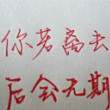 你若离去
后会无期